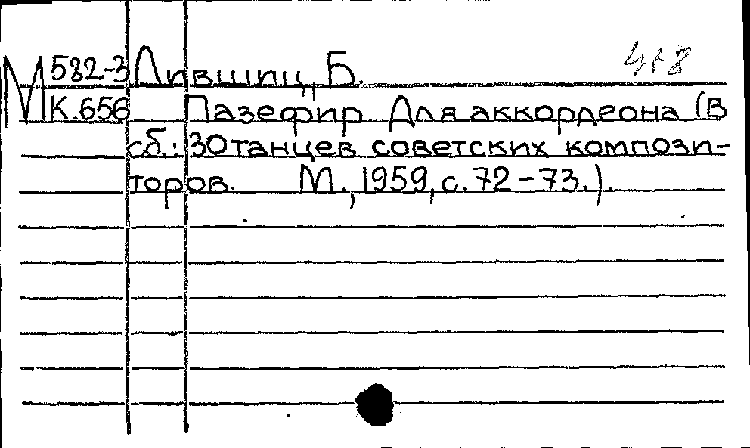 М 582-3 Лившиц, Б.
К.656 Пазефир Для аккордеона (В
сб.: 30 танцев советских компози-
торов. М., 1959, с. 72-73.).